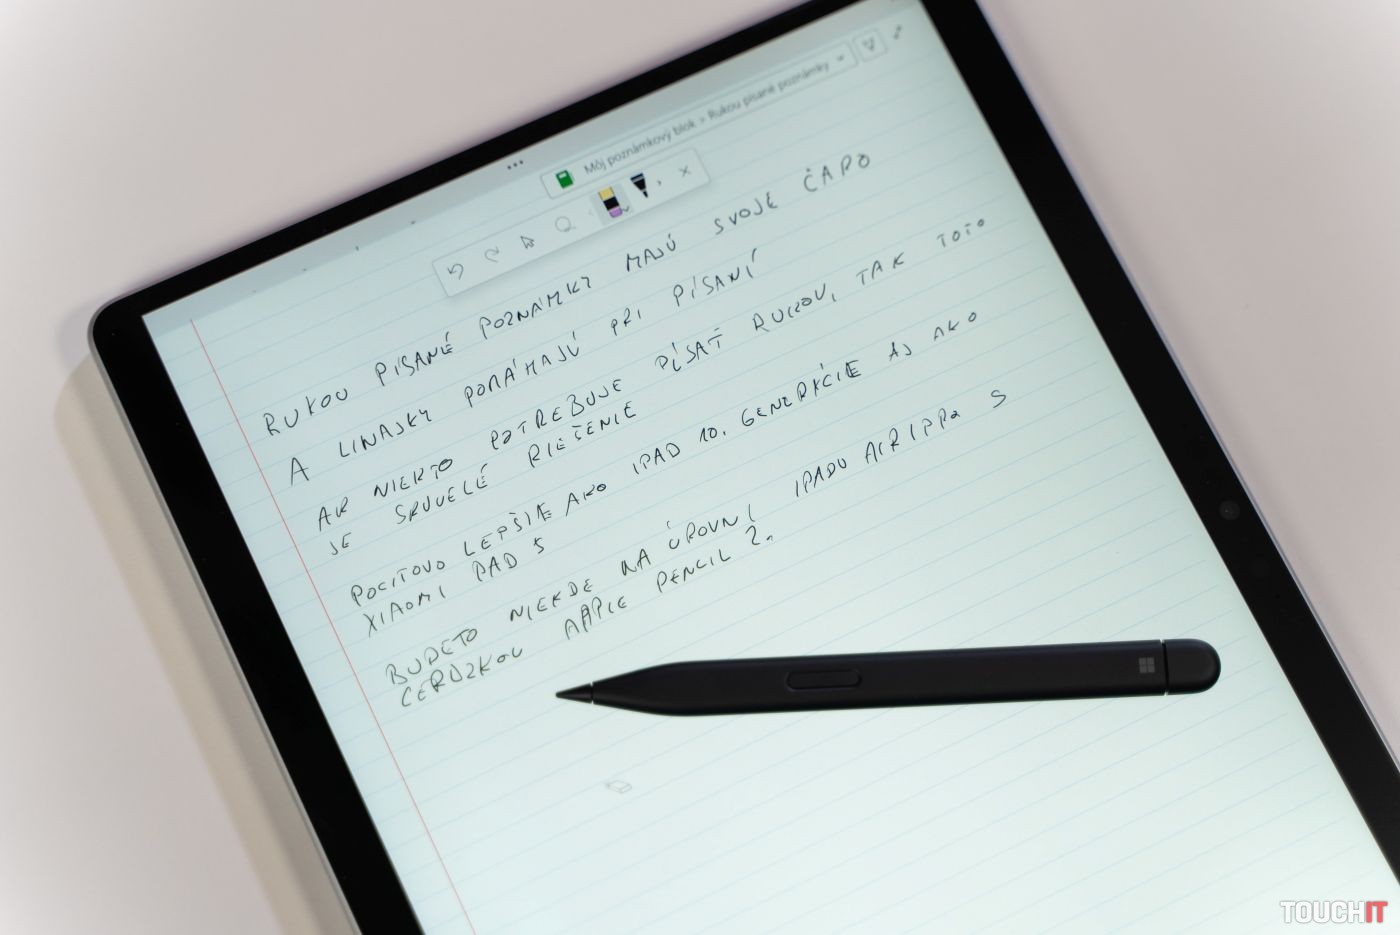 Môj poznámkový blok » Rukou písané poznámky
RUKOU PÍSANÉ POZNÁMKY MAJÚ SVOJE ČARO
A LINAJKY POMÁHAJÚ PRI PÍSANÍ
AK NIEKTO POTREBUJE PÍSAŤ RUKOU, TAK TOTO
JE SKVELÉ RIEŠENIE
POCITOVO LEPŠIE AKO IPAD 10. GENERÁCIE AJ AKO
XIAOMI PAD 5
BUDETO NIEKDE NA ÚROVNI IPADU S
CERUZKOU APPLE PENCIL 2.
TOUCHIT